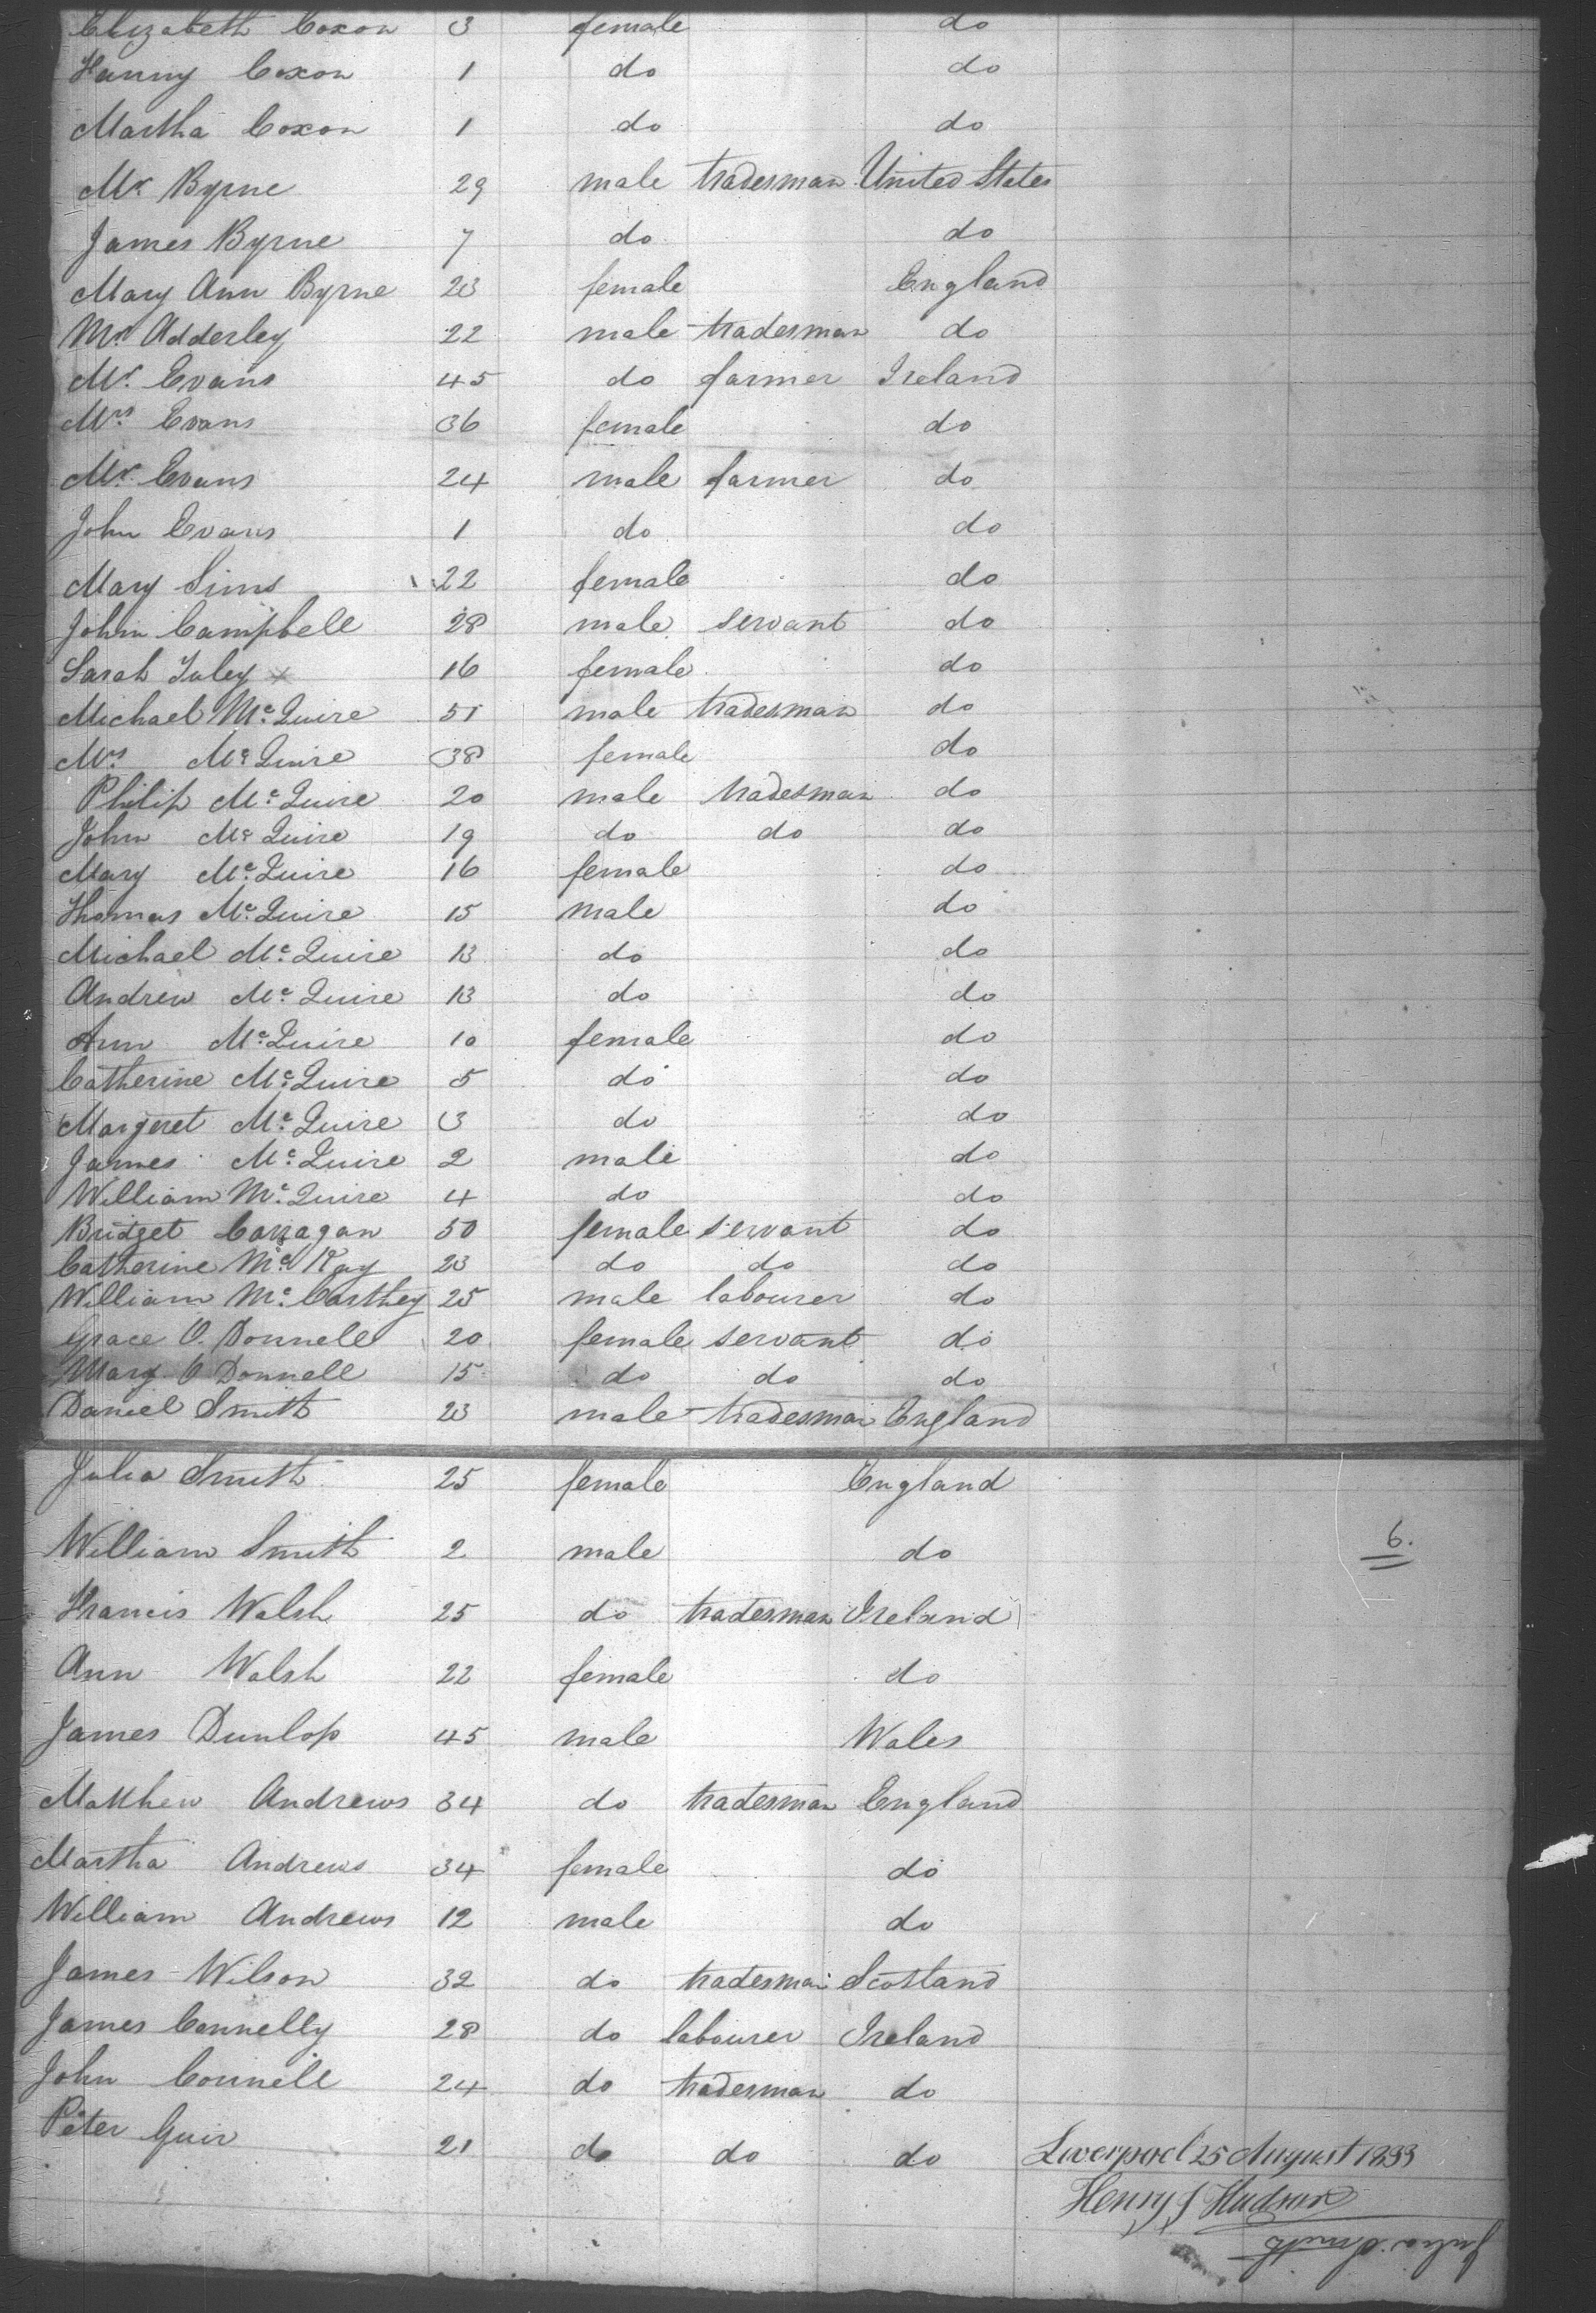 Elizabeth Coxon 3 female do
Hanny Coxon 1 do do
Martha Coxon 1 do do
Mr Byrne 29 male tradesman United States
James Byrne 7 do do
Mary Ann Byrne 23 female England
Mr Adderley 22 male tradesman do
Mr. Evans 45 do farmer Ireland
Mrs. Evans 36 female do
Mr. Evans 24 male farmer do
John Evans 1 do do
Mary Sims 22 female do
John Campbell 28 male servant do
Sarah Tuley x 16 female do
Michael Mc Quire 51 male tradesman do
Mrs Mc Quire 38 female do
Philip Mc Quire 20 male tradesman do
John Mc Quire 19 do do do
Mary Mc Quire 16 female do
Thomas Mc Quire 15 male do
Michael Mc Quire 13 do do
Andrew Mc Quire 13 do do
Ann Mc Quire 10 female do
Catherine Mc Quire 5 do do
Margeret Mc Quire 3 do do
James Mc Quire 2 male do
William Mc Quire 4 do do
Bridget 50 female servant do
Catherine Mc Kay 23 do do do
William Mc Carthey 25 male labourer do
Grace O. Donnell 20 female servant do
Mary O Donnell 15 do do do
Daniel Smith 23 male tradesman England
Julia Smith 25 female England
William Smith 2 male do
6.
Francis Walsh 25 do tradesman Ireland
Ann Walsh 22 female do
James Dunlop 45 male Wales
Matthew Andrews 34 do tradesman England
Martha Andrews 34 female do
William Andrews 12 male do
James Wilson 32 do tradesman Scotland
James Connelly 28 do labourer Ireland
John Connell 24 do tradesman do
Peter Guir 21 do do do
Liverpool 25 August 1833
Henry J Hudson
Julia Smith